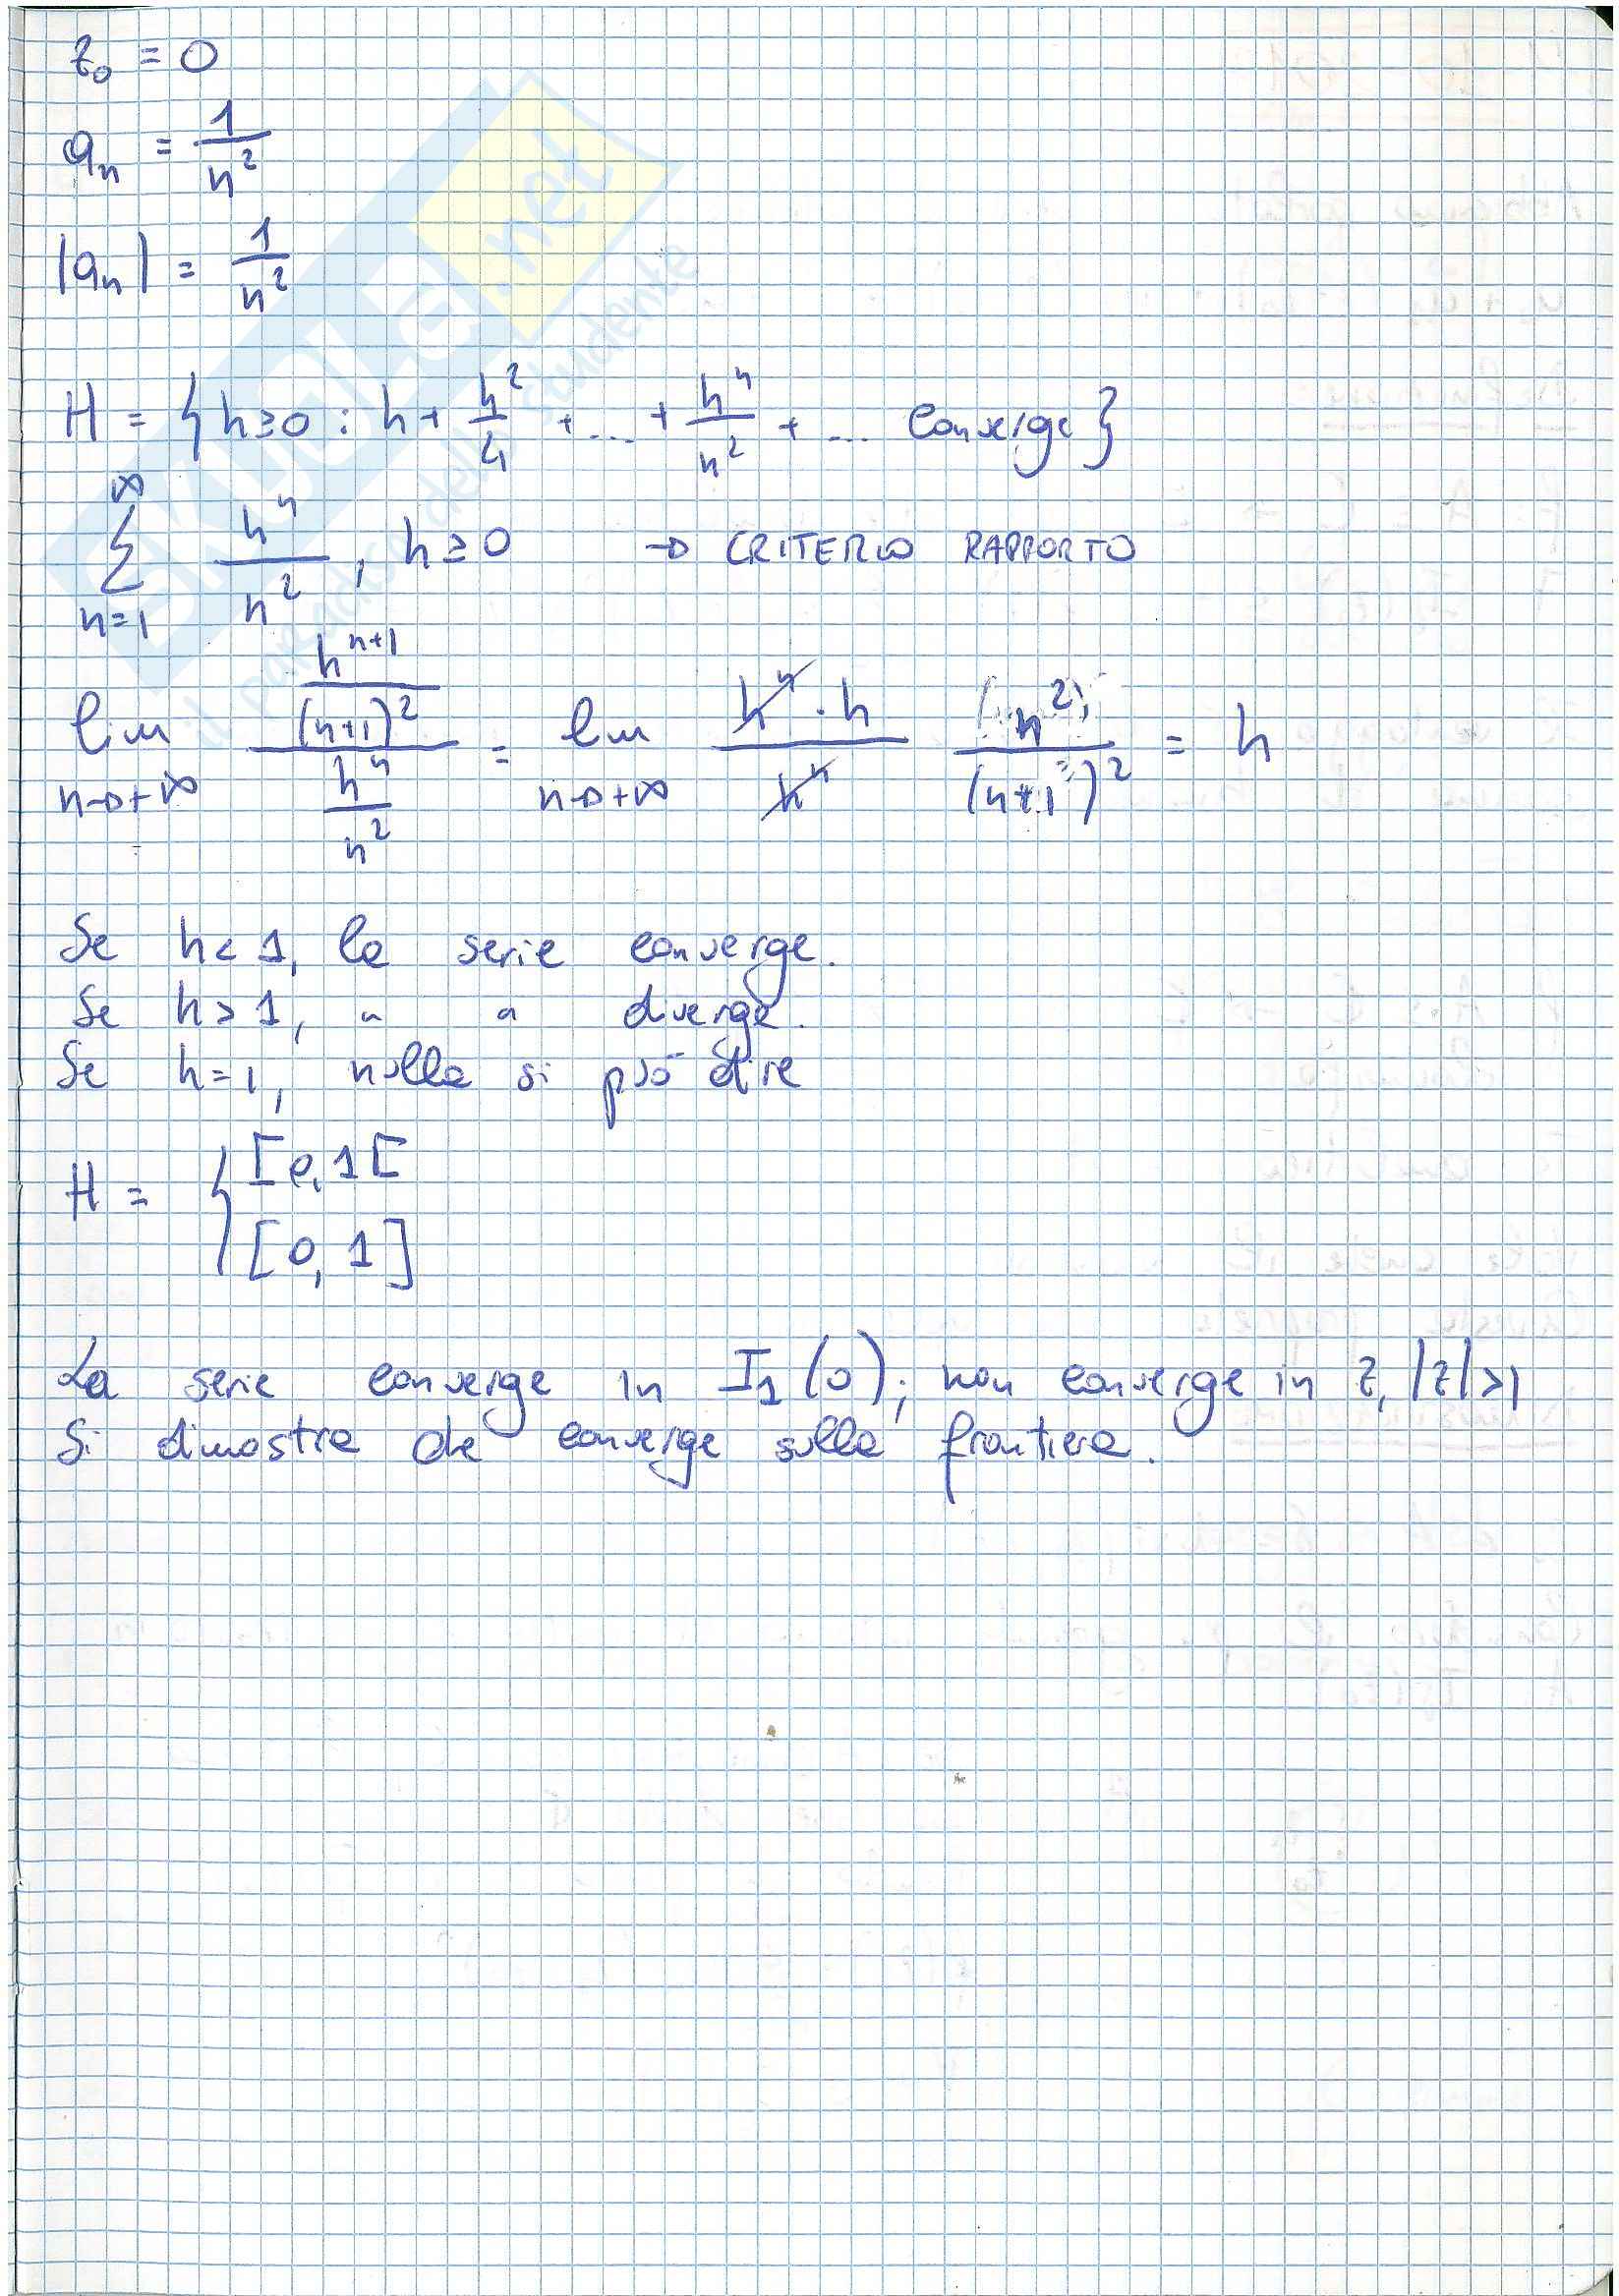 z₀ = 0
aₙ = 1/n²
|aₙ| = 1/n²
H = { h≥0 : h + h²/4 + ... + hⁿ/n² + ... converge }
∞
∑ hⁿ/n² , h≥0 → CRITERIO RAPPORTO
n=1
lim n→+∞ (hⁿ⁺¹/(n+1)²)/(hⁿ/n²) = lim n→+∞ (hⁿ · h)/hⁿ (n²)/(n+1)² = h
Se h<1, la serie converge.
Se h>1, " " diverge.
Se h=1, nulla si può dire
H = { [0,1[
[0,1]
La serie converge in I₁(0); non converge in z, |z|>1
Si dimostra che converge sulla frontiera.
SKUOLA.net
il paradiso dello studente